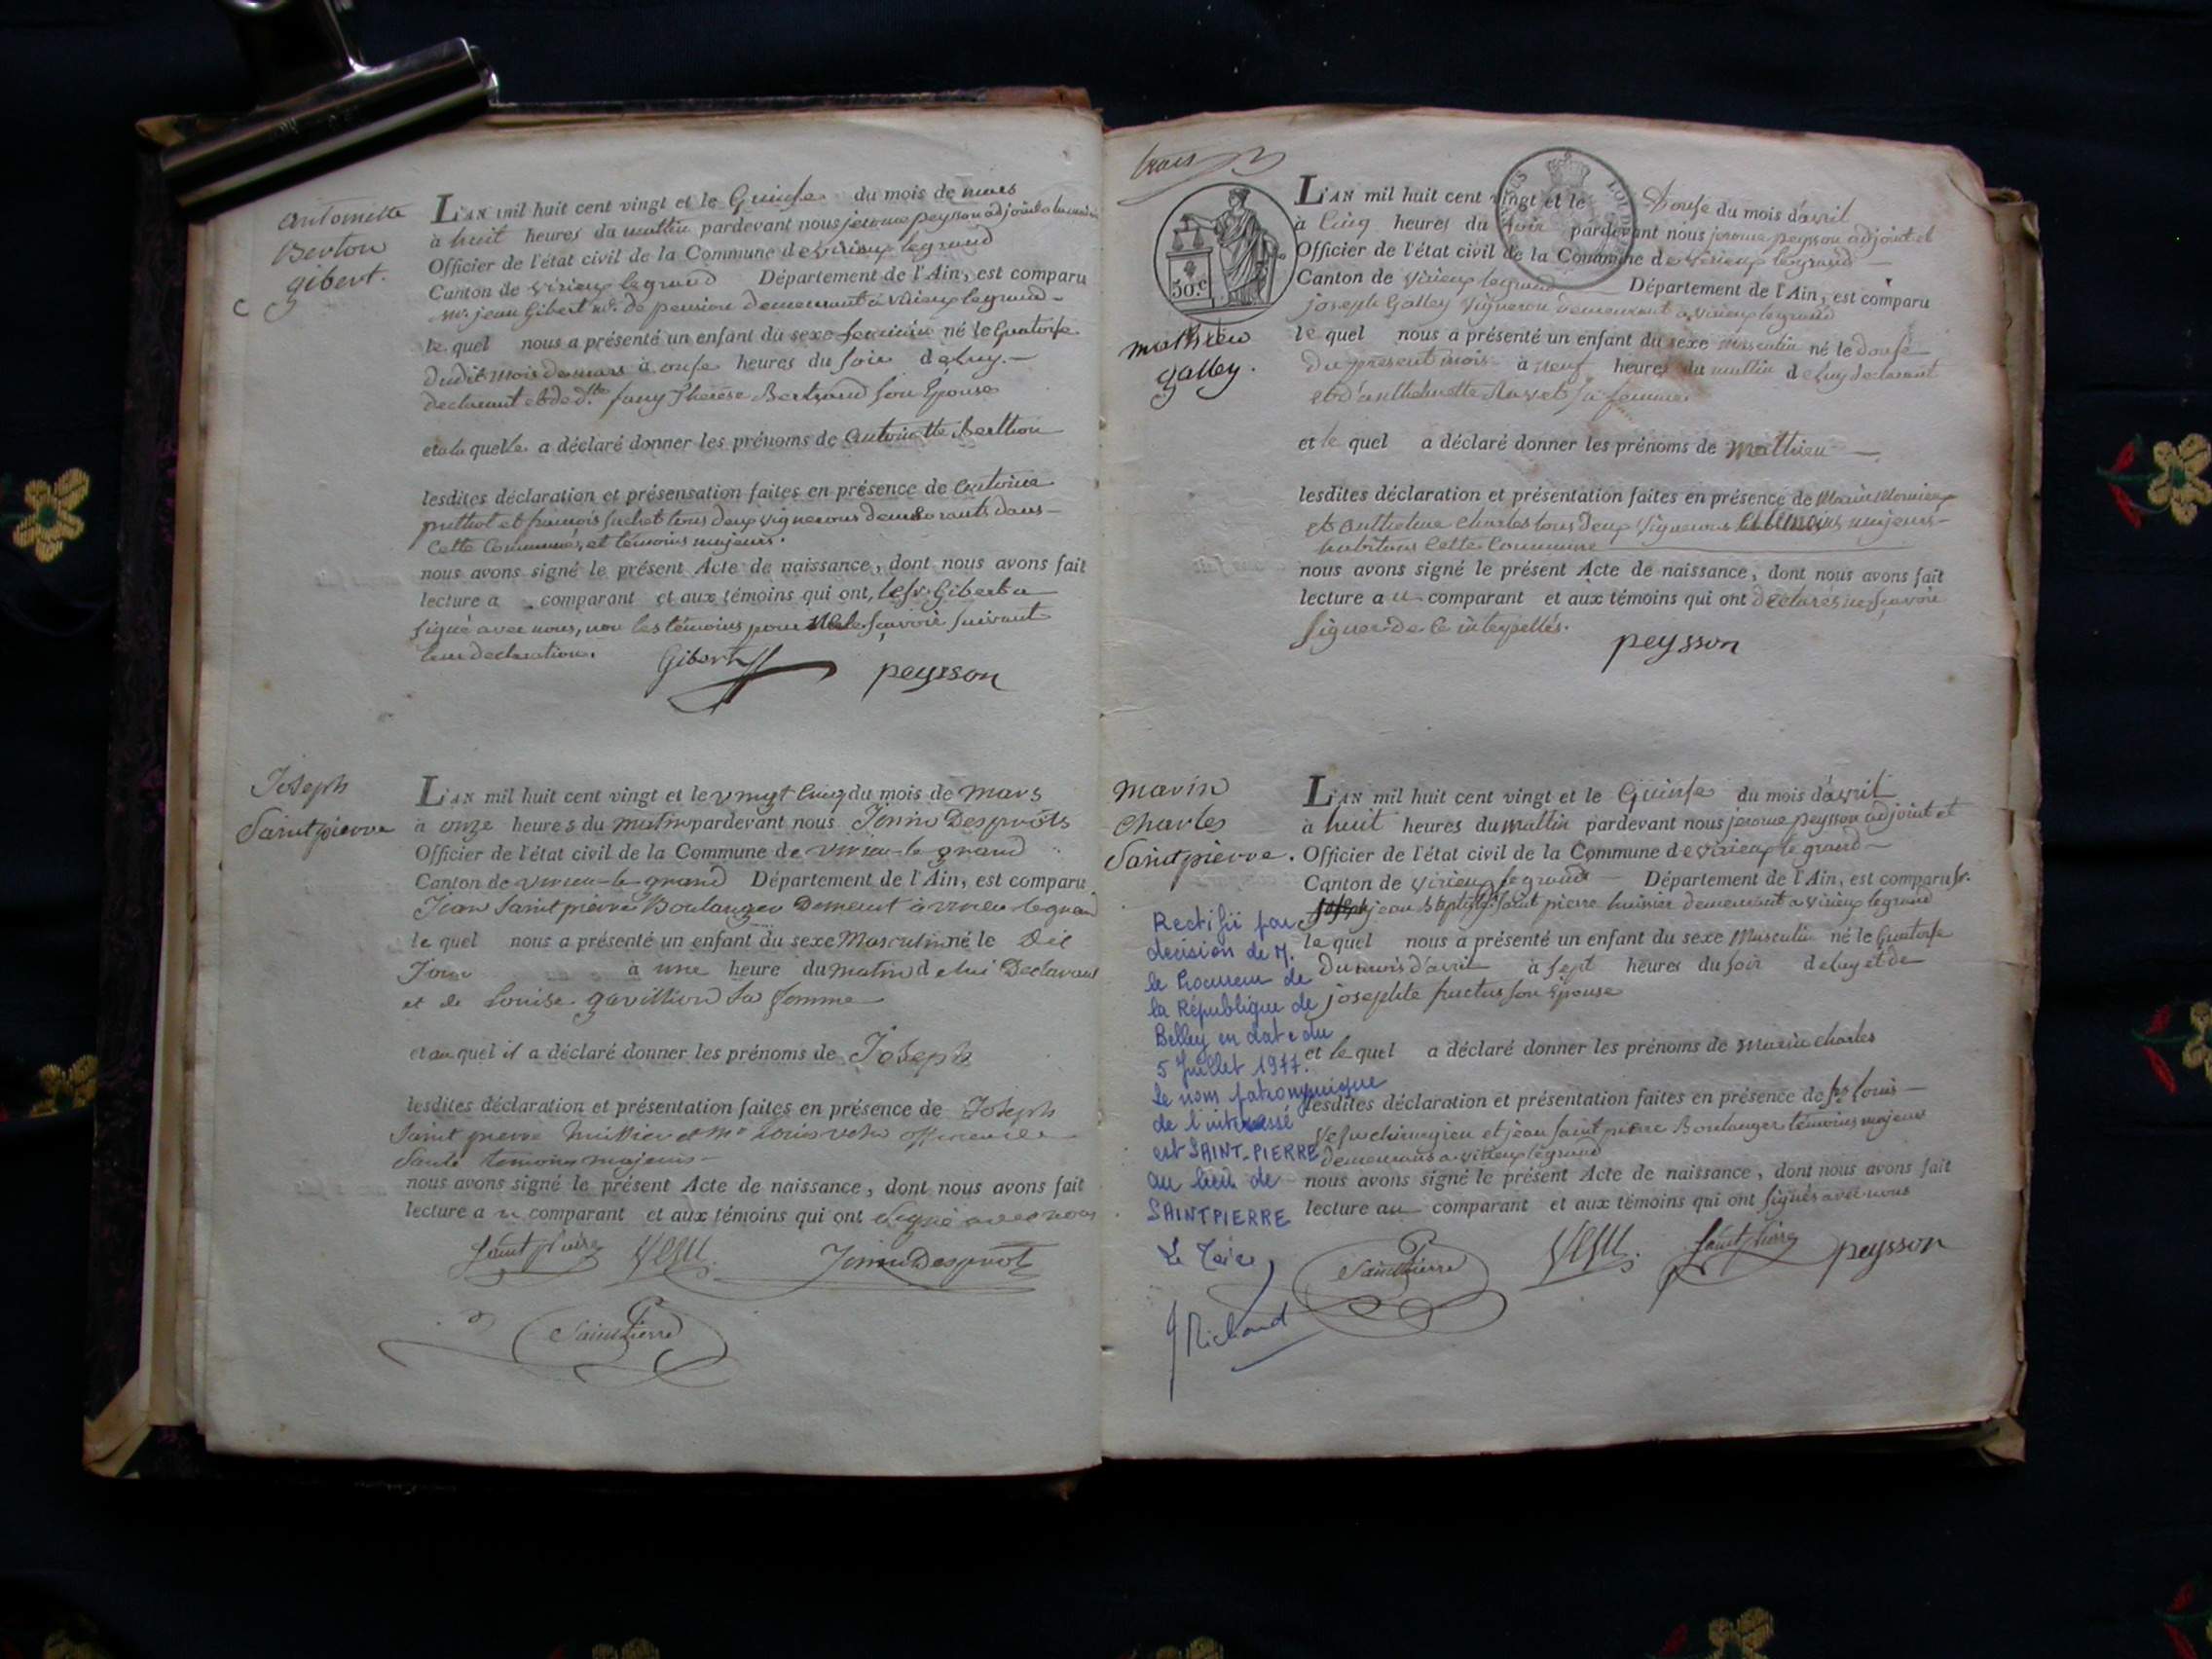 Antoinette
Berton
gibert.
C
L'AN mil huit cent vingt et le Quinse du mois de mars
à huit heures du mattin pardevant nous jerome peysson adjoint
Officier de l'état civil de la Commune de Virieux legrand
Canton de Virieux legrand Département de l'Ain, est comparu
mr. jean Gibert de pension demeurant à Virieux legrand
le quel nous a présenté un enfant du sexe feminin né le Quatorse
dudit mois de mars à onse heures du soir de luy
declarant et de dlle fany Therese Bertrand son Epouse
et a la quelle a déclaré donner les prénoms de Antoinette Berthon
lesdites déclaration et présensation faites en présence de Antoine
puthot et francois suchet tous deux vignerons demeurants dans
Cette Commune, et témoins majeurs.
nous avons signé le présent Acte de naissance, dont nous avons fait
lecture a comparant et aux témoins qui ont, le sr. Gibert a
signé avec nous, non les témoins pour ne le scavoir suivant
leur declaration.
Gibert peysson
Joseph
Saintpierre
L'AN mil huit cent vingt et le vingt Cinq du mois de Mars
à onze heures du matin pardevant nous Jenin Desprots
Officier de l'état civil de la Commune de Virieu-le grand
Canton de Virieu-le grand Département de l'Ain, est comparu
Jean Saint pierre Boulanger Demeurt à Virieu legrand
le quel nous a présenté un enfant du sexe Masculin né le Dit
Jour à une heure du matin de lui Declarant
et de Louise gavillion sa femme
et au quel il a déclaré donner les prénoms de Joseph
lesdites déclaration et présentation faites en présence de Joseph
Saint pierre huissier et Mr Louis officier de
Santé temoins majeurs
nous avons signé le présent Acte de naissance, dont nous avons fait
lecture a u comparant et aux témoins qui ont signé avec nous
Saint pierre Jenin Desprot
Saint Pierre
trois
50.c
mathieu
galley.
L'AN mil huit cent vingt et le Douse du mois d'avril
à Cinq heures du soir pardevant nous jerome peysson adjoint et
Officier de l'état civil de la Commune de Virieux legrand
Canton de Virieux legrand Département de l'Ain, est comparu
joseph Galley Vigneron demeurant a Virieux legrand
le quel nous a présenté un enfant du sexe masculin né le douse
du present mois à neuf heures du mattin de luy declarant
et d'anthelmette sa femme
et le quel a déclaré donner les prénoms de Mathieu
lesdites déclaration et présentation faites en présence de Marin
et Anthelme Charles tous deux Vignerons et témoins majeurs
habitans Cette Commune
nous avons signé le présent Acte de naissance, dont nous avons fait
lecture a u comparant et aux témoins qui ont declarés ne scavoir
signer de ce interpellés.
peysson
Marin
Charles
Saintpierre.
L'AN mil huit cent vingt et le Quinse du mois d'avril
à huit heures du mattin pardevant nous jerome peysson adjoint et
Officier de l'état civil de la Commune de Virieux le grand
Canton de Virieux legrand Département de l'Ain, est comparu sr.
jean Baptiste Saint pierre huissier demeurant a Virieux legrand
le quel nous a présenté un enfant du sexe Masculin né le Quatorse
Du mois d'avril à sept heures du soir de luy et de
josephte fructus son Epouse
et le quel a déclaré donner les prénoms de Marin Charles
lesdites déclaration et présentation faites en présence de sr. Louis
chirurgien et jean Saint pierre Boulanger témoins majeurs
demeurans a Virieux legrand
nous avons signé le présent Acte de naissance, dont nous avons fait
lecture au comparant et aux témoins qui ont signés avec nous
Saint Pierre Saint pierre peysson
Rectifié par
décision de M.
le Procureur de
la République de
Belley en date du
5 Juillet 1977.
le nom patronymique
de l'intéressé
est SAINT-PIERRE
au lieu de
SAINTPIERRE
Le Maire,
Richard